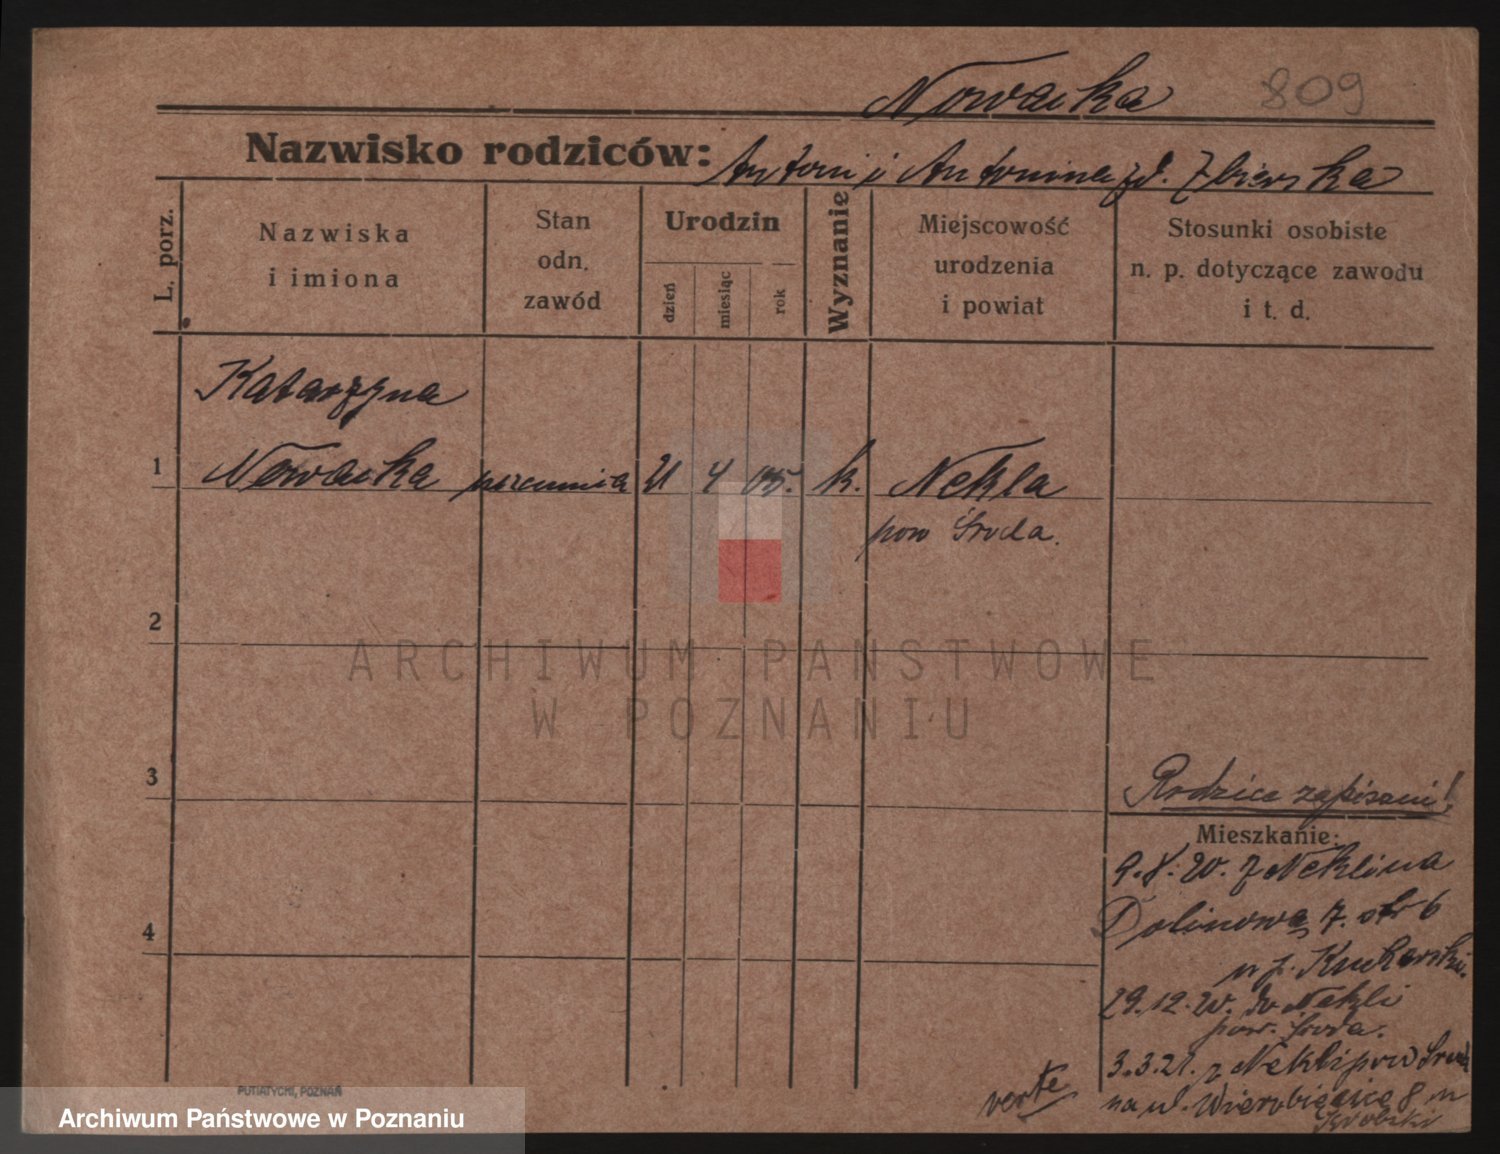 Nowacka 809
Nazwisko rodziców: Antoni i Antonina zd. Zbierska
L. porz.
Nazwiska
i imiona
Stan
odn.
zawód
Urodzin
dzień
miesiąc
rok
Wyznanie
Miejscowość
urodzenia
i powiat
Stosunki osobiste
n. p. dotyczące zawodu
i t. d.
Katarzyna
1 Nowacka 4 05. k. Nekla
pow Środa.
2
ARCHIWUM PAŃSTWOWE
W POZNANIU
3
Rodzice zapisani!
Mieszkanie:
9.8.20. z Neklina
Dolinowa 7. 6
4
u p. Kucharski.
29.12.20. do Nekli
pow. Środa.
3.3.21. z Nekli pow Środa
na ul. Wierzbięcice 8 m
verte
PUTIATYCKI, POZNAŃ
Archiwum Państwowe w Poznaniu